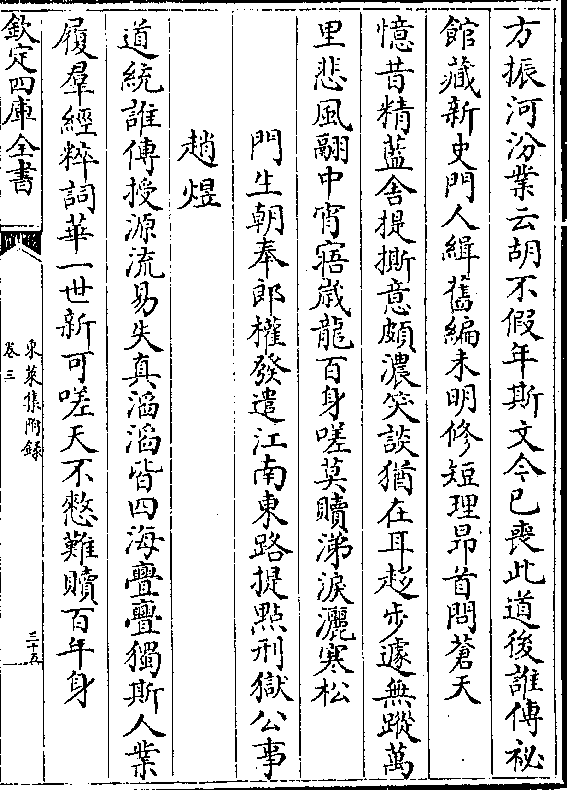 方振河汾業云胡不假年斯文今已喪此道後誰傳祕
館藏新史門人緝舊編未明修短理昻首問蒼天
憶昔精藍舍提撕意頗濃笑談猶在耳趍步遽無蹤萬
里悲風翮中宵寤歳龍百身嗟莫贖涕淚灑寒松
門生朝奉郎權發遣江南東路提點刑獄公事
趙煜
道統誰傳授源流易失真滔滔皆四海亹亹獨斯人業
履羣經粹詞華一世新可嗟天不憗難贖百年身
欽定四庫全書
東萊集附錄
卷三
三十五